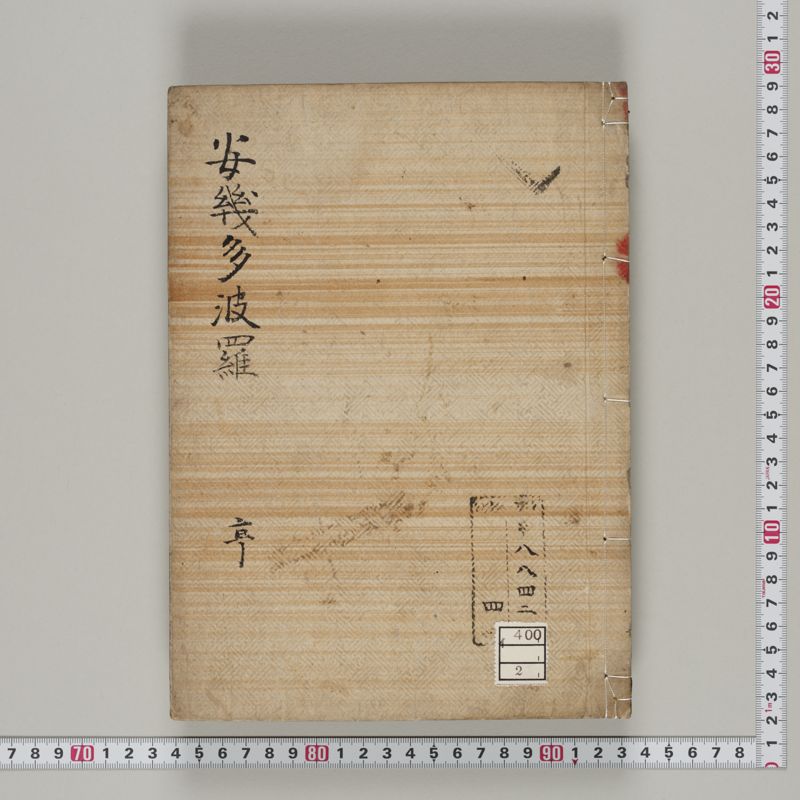 安幾多波羅
亨
八八四二
四
400
2
2 1 30 9 8 7 6 5 4 3 2 1 20 9 8 7 6 5 4 3 2 1 10 9 8 7 6 5 4 3 2 1
7 8 9 70 1 2 3 4 5 6 7 8 9 80 1 2 3 4 5 6 7 8 9 90 1 2 3 4 5 6 7 8